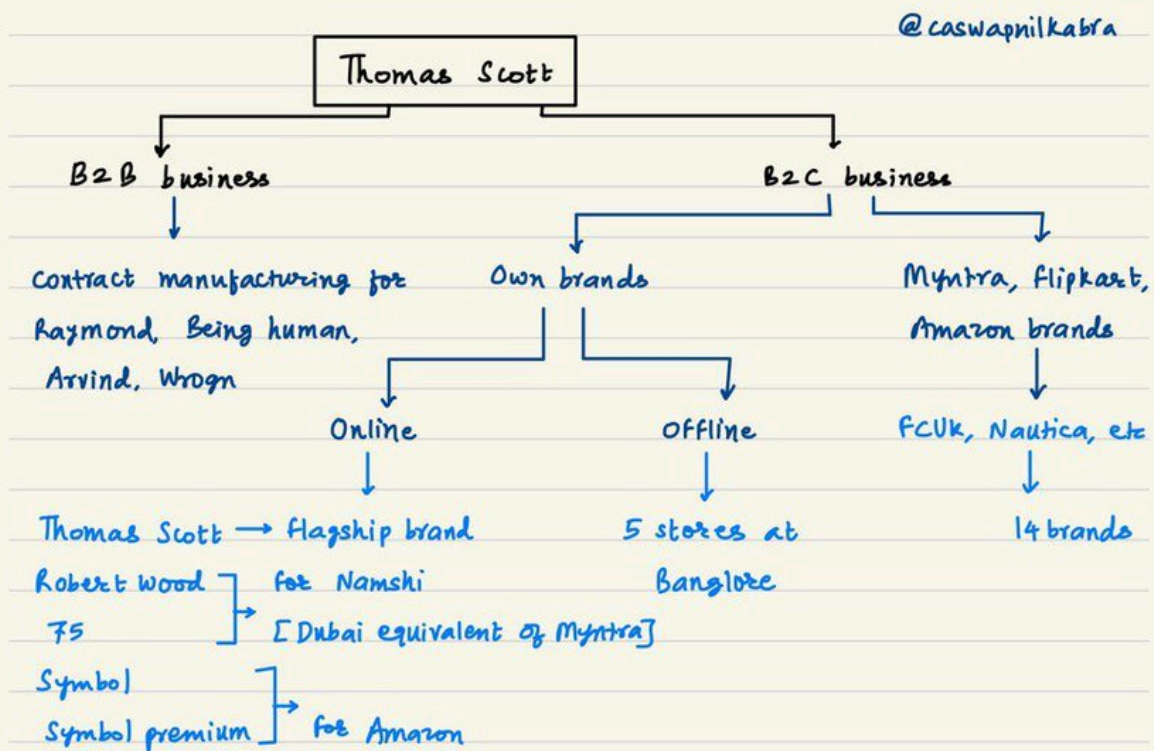 @caswapnilkabra
Thomas Scott
B2B business
B2C business
Contract manufacturing for
Raymond, Being human,
Arvind, Wrogn
Own brands
Myntra, flipkart,
Amazon brands
Online
Offline
FCUK, Nautica, etc
Thomas Scott → flagship brand
Robert wood
75
for Namshi
[Dubai equivalent of Myntra]
Symbol
Symbol premium
for Amazon
5 stores at
Banglore
14 brands